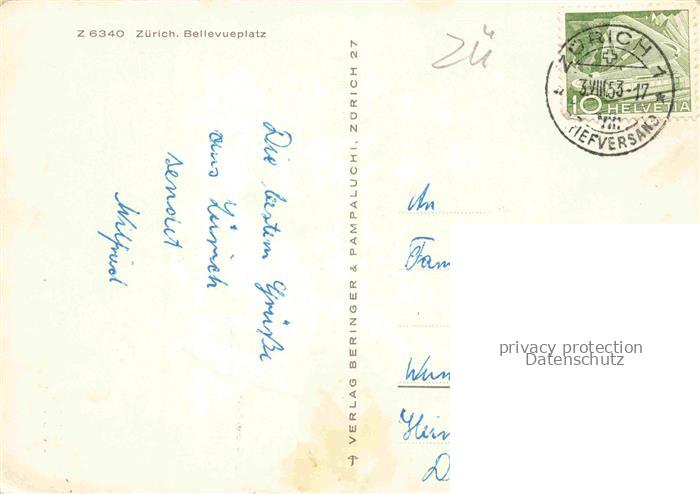 Z 6340 Zürich. Bellevueplatz
Die besten Grüße
aus Zürich
sendet
Wilfried
VERLAG BERINGER & PAMPALUCHI, ZÜRICH 27
ZÜ
ZÜRICH 1
3.VIII.53-17
VIII
BRIEFVERSAND
10 HELVETIA
An
Fam
privacy protection
Datenschutz
D